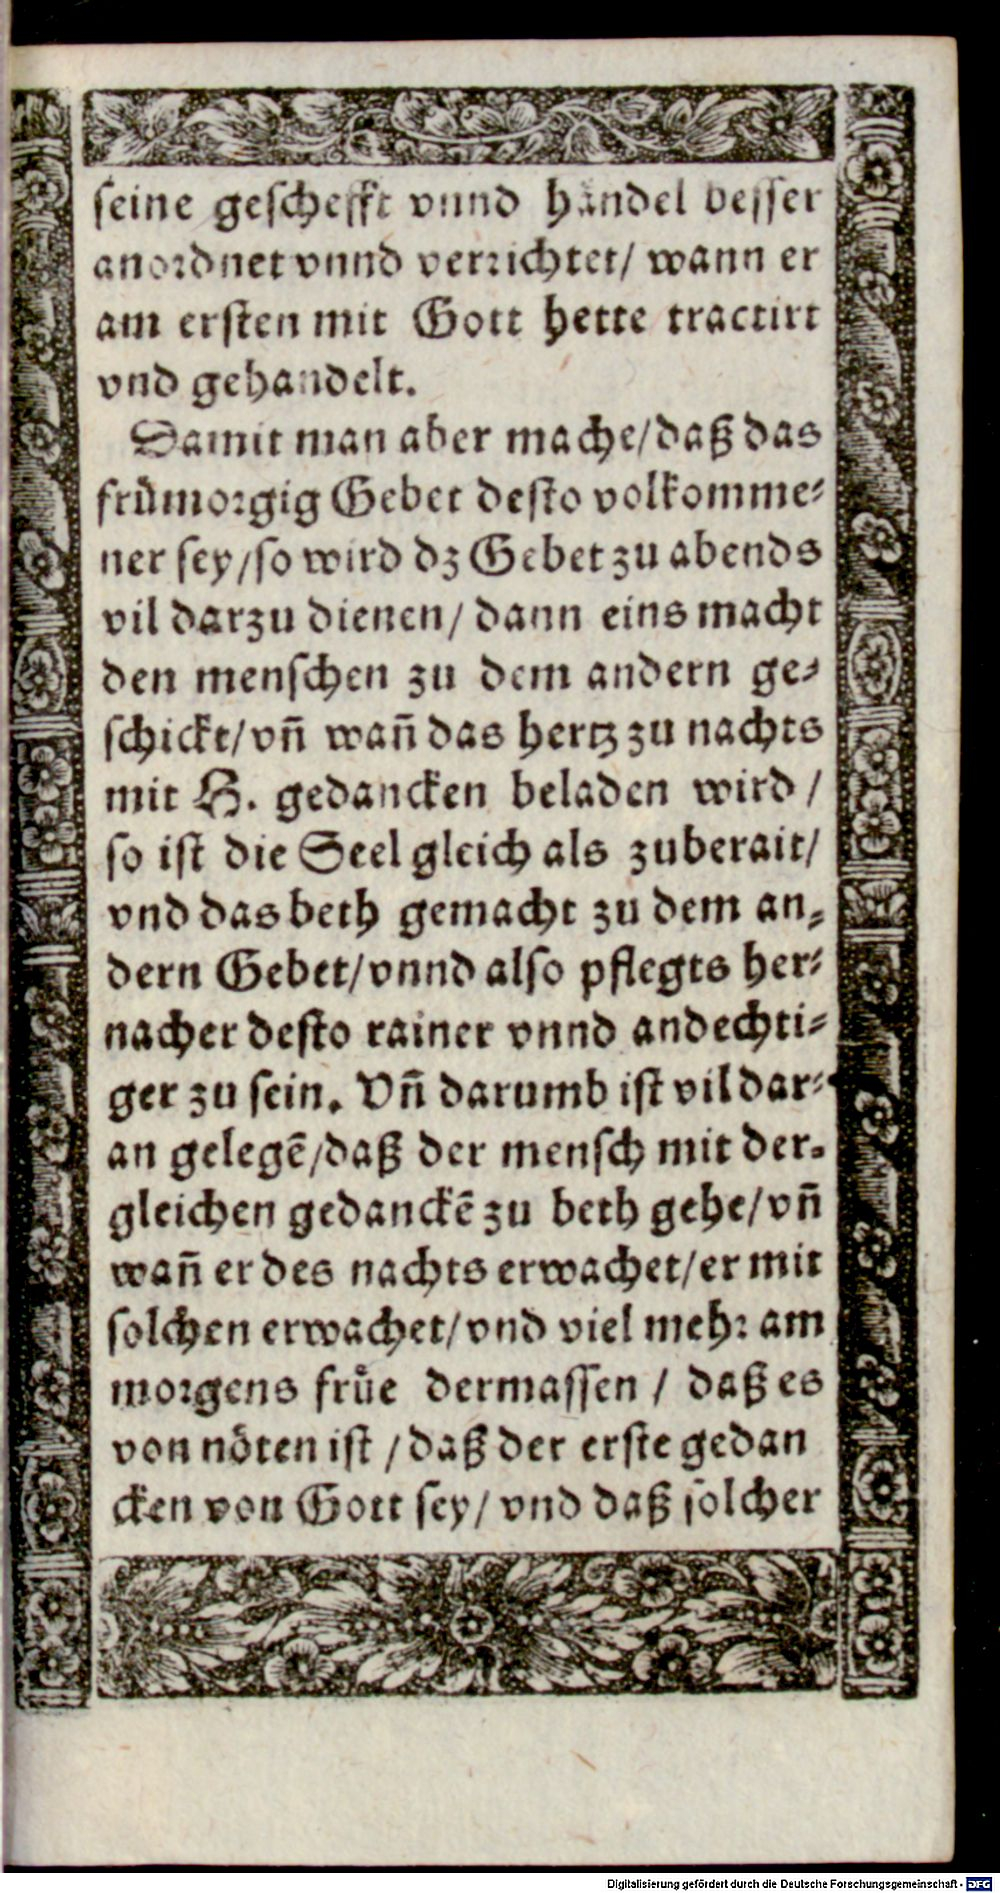 seine geschefft vnnd händel besser
anordnet vnnd verrichtet/ wann er
am ersten mit Gott hette tractirt
vnd gehandelt.
Damit man aber mache/daß das
frümorgig Gebet desto volkomme-
ner sey/so wird dz Gebet zu abends
vil darzu dienen/ dann eins macht
den menschen zu dem andern ge-
schickt/vñ wañ das hertz zu nachts
mit H. gedancken beladen wird/
so ist die Seel gleich als zuberait/
vnd das beth gemacht zu dem an-
dern Gebet/vnnd also pflegts her-
nacher desto rainer vnnd andechti-
ger zu sein. Vñ darumb ist vil dar-
an gelegẽ/daß der mensch mit der-
gleichen gedanckẽ zu beth gehe/vñ
wañ er des nachts erwachet/er mit
solchen erwachet/vnd viel mehr am
morgens früe dermassen / daß es
von nöten ist /daß der erste gedan
cken von Gott sey/ vnd daß solcher
Digitalisierung gefördert durch die Deutsche Forschungsgemeinschaft - DFG